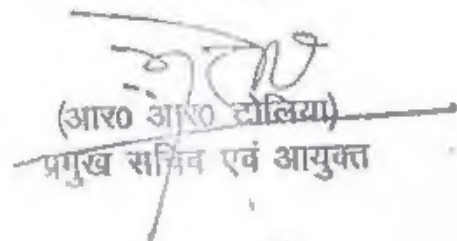 (आर० आर० टोलिया)
प्रमुख सचिव एवं आयुक्त